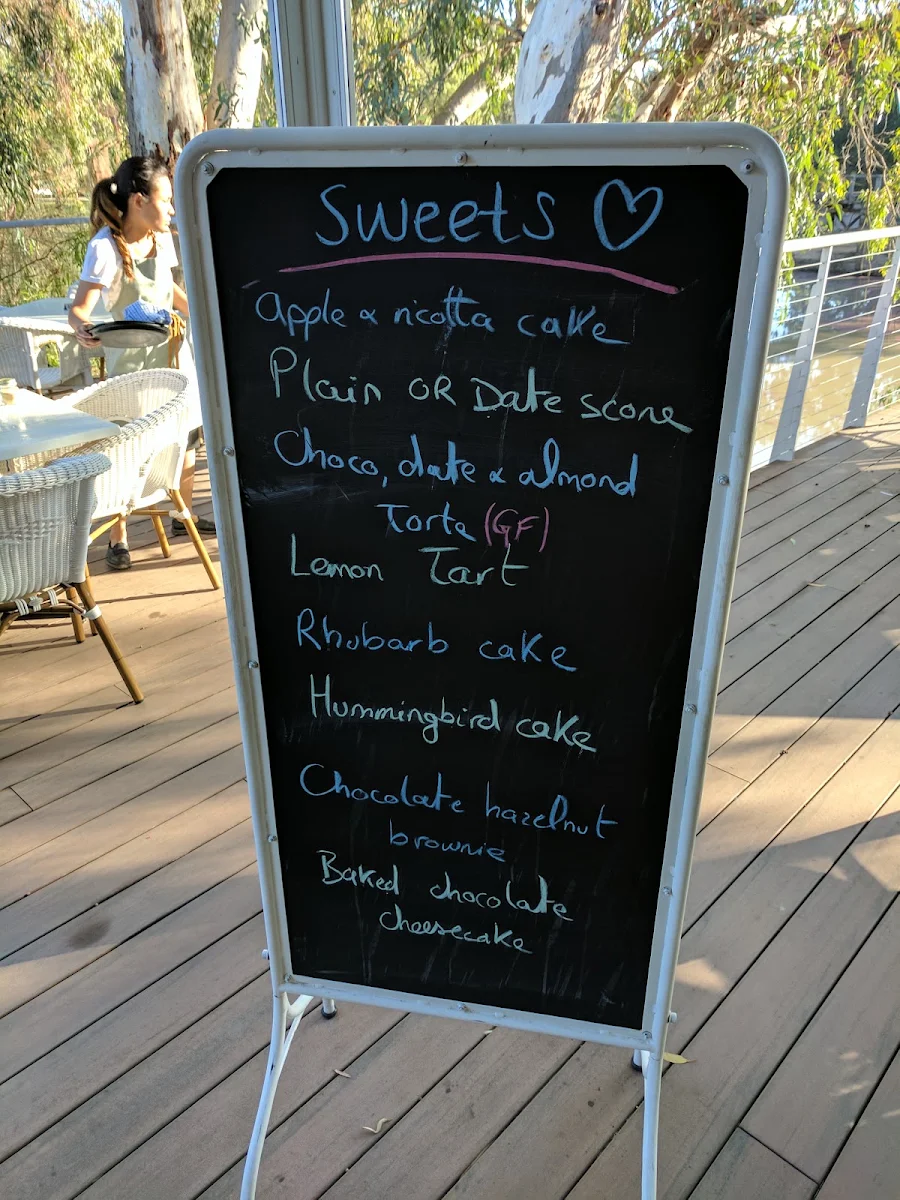 Sweets ♡
Apple & ricotta cake
Plain OR Date scone
Choco, date & almond
Torte (GF)
Lemon Tart
Rhubarb cake
Hummingbird cake
Chocolate hazelnut
brownie
Baked chocolate
cheesecake